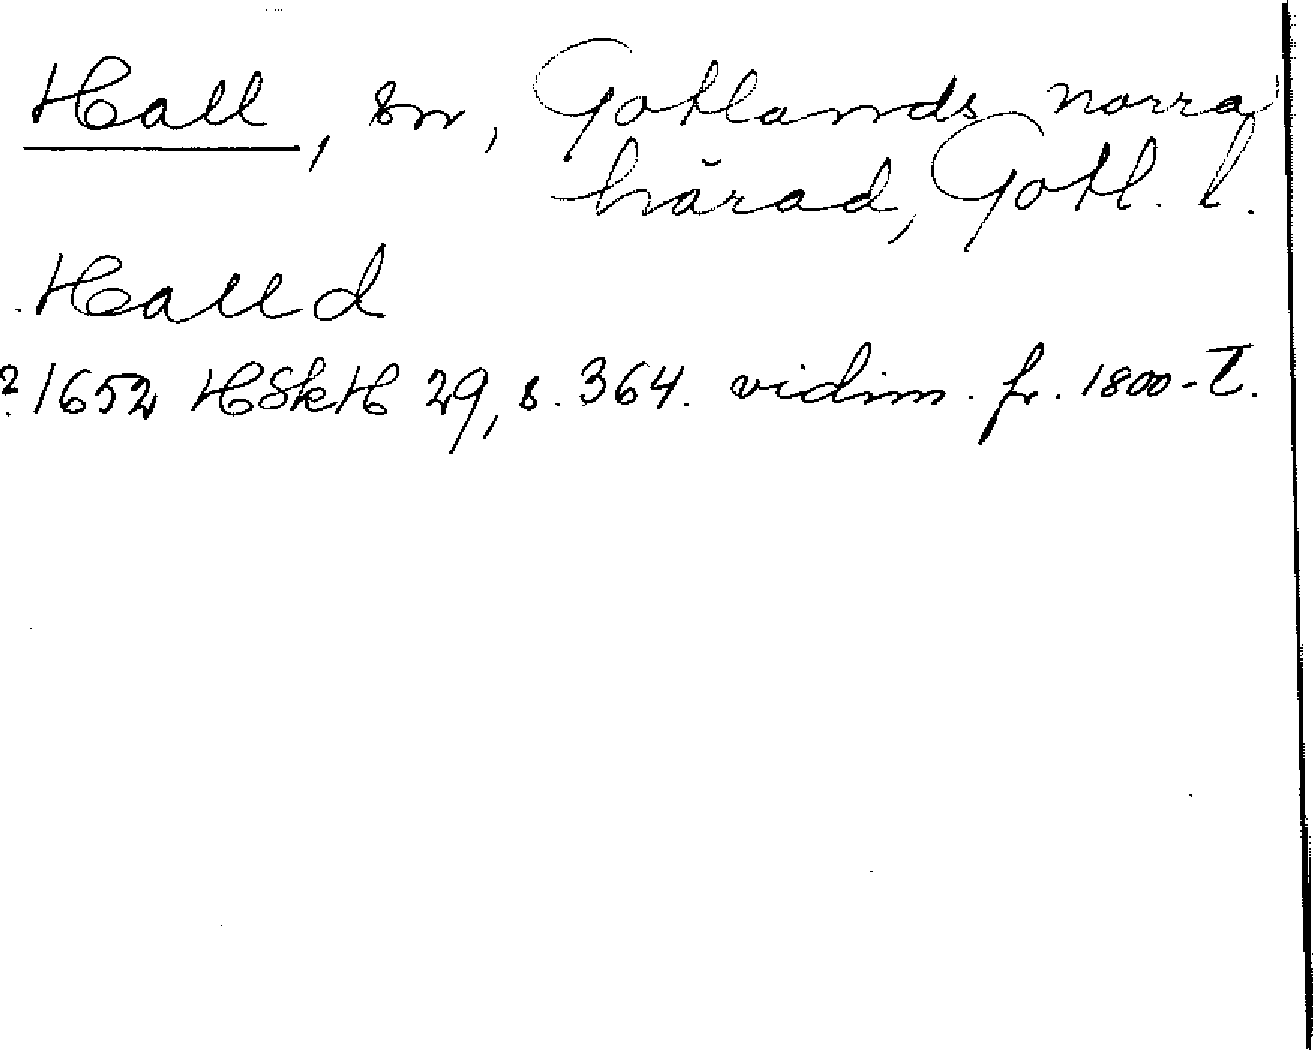 Hall, sn, Gotlands norra
härad, Gotl. l.
Halld
? 1652 HSkH 29, s. 364. vidim. fr. 1800-t.